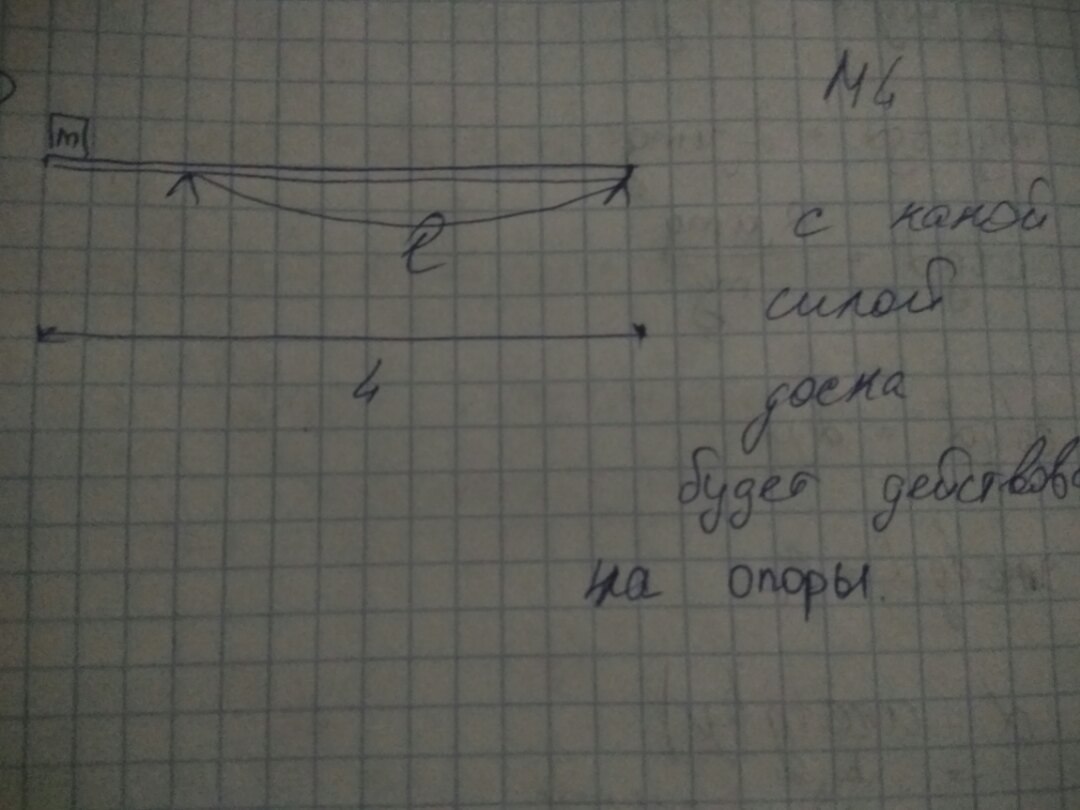 М4
m
с какой
l
силой
4
доска
будет действова
на опоры.